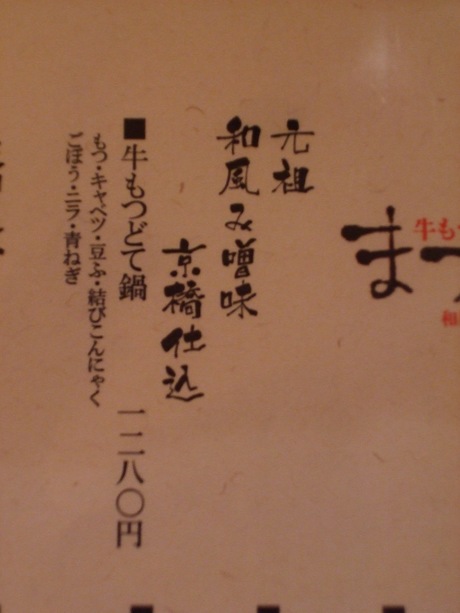 牛もつ
ま
元祖
和風み噌味
京橋仕込
■牛もつどて鍋 一二八〇円
もつ・キャベツ・豆ふ・結びこんにゃく
ごぼう・ニラ・青ねぎ